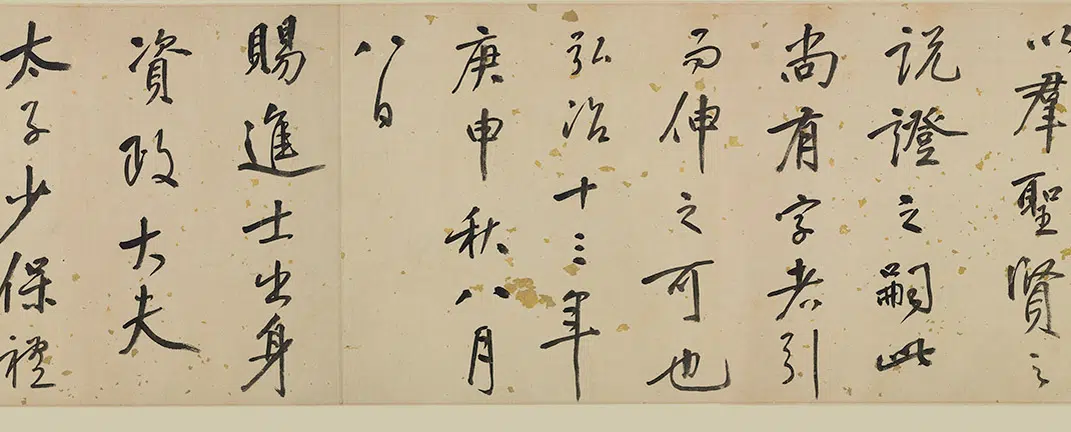 以羣聖賢之
説證之嗣此
尚有字者引
而伸之可也
弘治十三年
庚申秋八月
八日
賜進士出身
資政大夫
太子少保禮